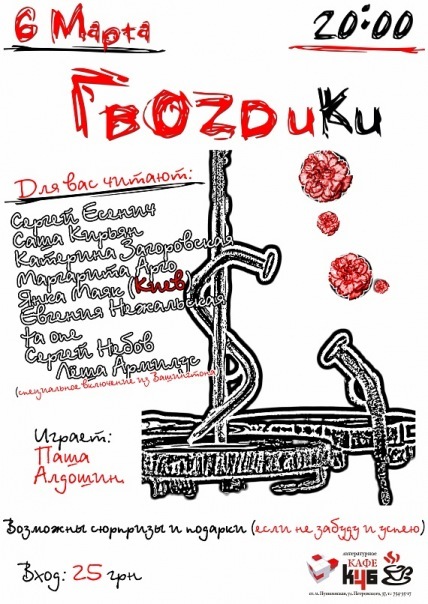 6 Марта 20:00
ГвоzDиКи
Для вас читают:
Сергей Есенин
Саша Кирьян
Катерина Загоровская
Маргарита Арго
Янка Маяк (Киев)
Евгения Нежальская
та оле
Сергей Небов
Лёша Армилус
(специальное включение из Вашингтона)
Играет:
Паша
Алдошин.
Возможны сюрпризы и подарки (если не забуду и успею)
Вход: 25 грн
литературное
КАФЕ
КУБ